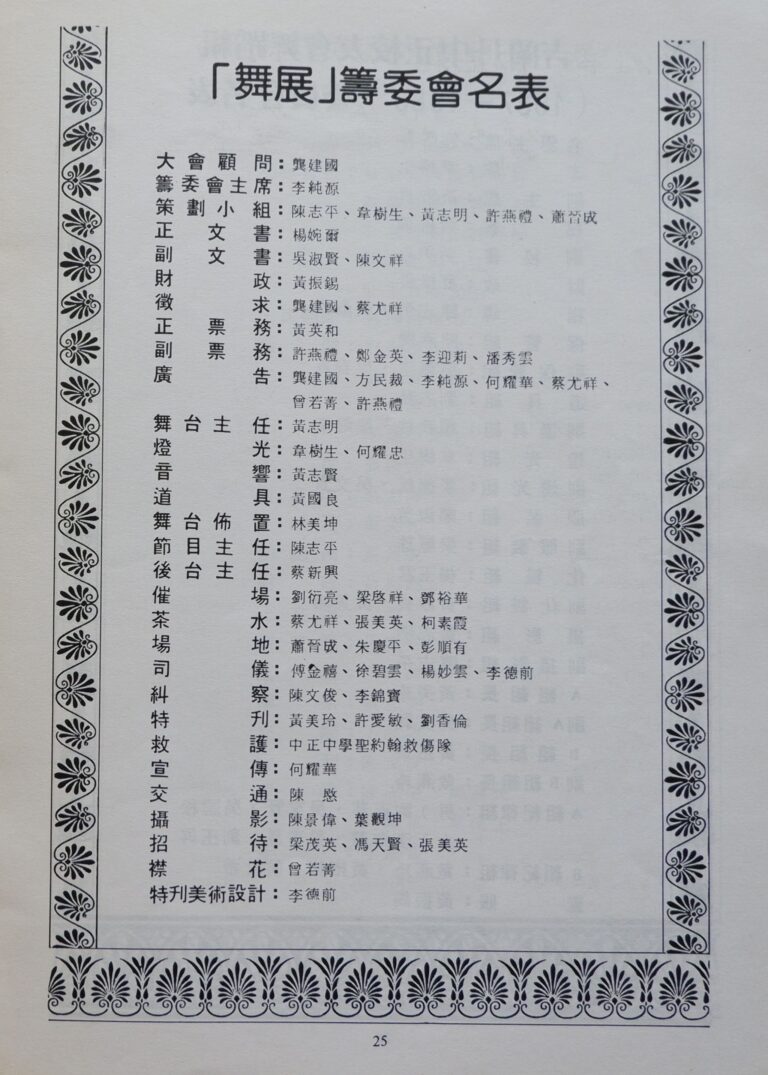 「舞展」籌委會名表
大會顧問：龔建國
籌委會主席：李純源
策劃小組：陳志平、韋樹生、黃志明、許燕禮、蕭晉成
正文書：楊婉爾
副文書：吳淑賢、陳文祥
財政：黃振錫
徵求：龔建國、蔡尤祥
正票務：黃英和
副票務：許燕禮、鄭金英、李迎莉、潘秀雲
廣告：龔建國、方民裁、李純源、何耀華、蔡尤祥、
曾若菁、許燕禮
舞台主任：黃志明
燈光：韋樹生、何耀忠
音響：黃志賢
道具：黃國良
舞台佈置：林美坤
節目主任：陳志平
後台主任：蔡新興
催場：劉衍亮、梁啓祥、鄧裕華
茶水：蔡尤祥、張美英、柯素霞
場地：蕭晉成、朱慶平、彭順有
司儀：傅金禧、徐碧雲、楊妙雲、李德前
糾察：陳文俊、李錦寶
特刋：黃美玲、許愛敏、劉香倫
救護：中正中學聖約翰救傷隊
宣傳：何耀華
交通：陳愍
攝影：陳景偉、葉觀坤
招待：梁茂英、馮天賢、張美英
襟花：曾若菁
特刋美術設計：李德前
25